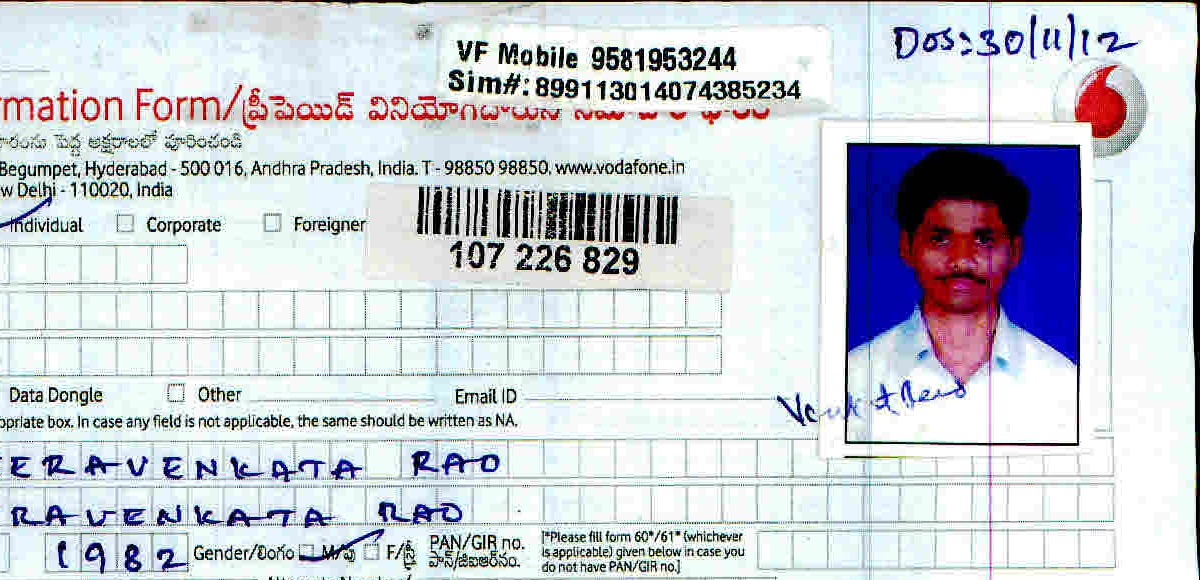 DOS: 30/11/12
VF Mobile 9581953244
Sim#: 899113014074385234
rmation Form/ప్రీపెయిడ్ వినియోగదారుని
పెద్ద అక్షరాలలో పూరించండి
Begumpet, Hyderabad - 500 016, Andhra Pradesh, India. T - 98850 98850, www.vodafone.in
w Delhi - 110020, India
Individual Corporate Foreigner
107 226 829
Data Dongle Other Email ID
opriate box. In case any field is not applicable, the same should be written as NA.
Venkat Rao
ERAVENKATA RAO
RAVENKATA RAO
1982 Gender/లింగం M/పు F/స్త్రీ PAN/GIR no. [*Please fill form 60*/61* (whichever
పాన్/జిఐఆర్‌నం. is applicable) given below in case you
do not have PAN/GIR no.]